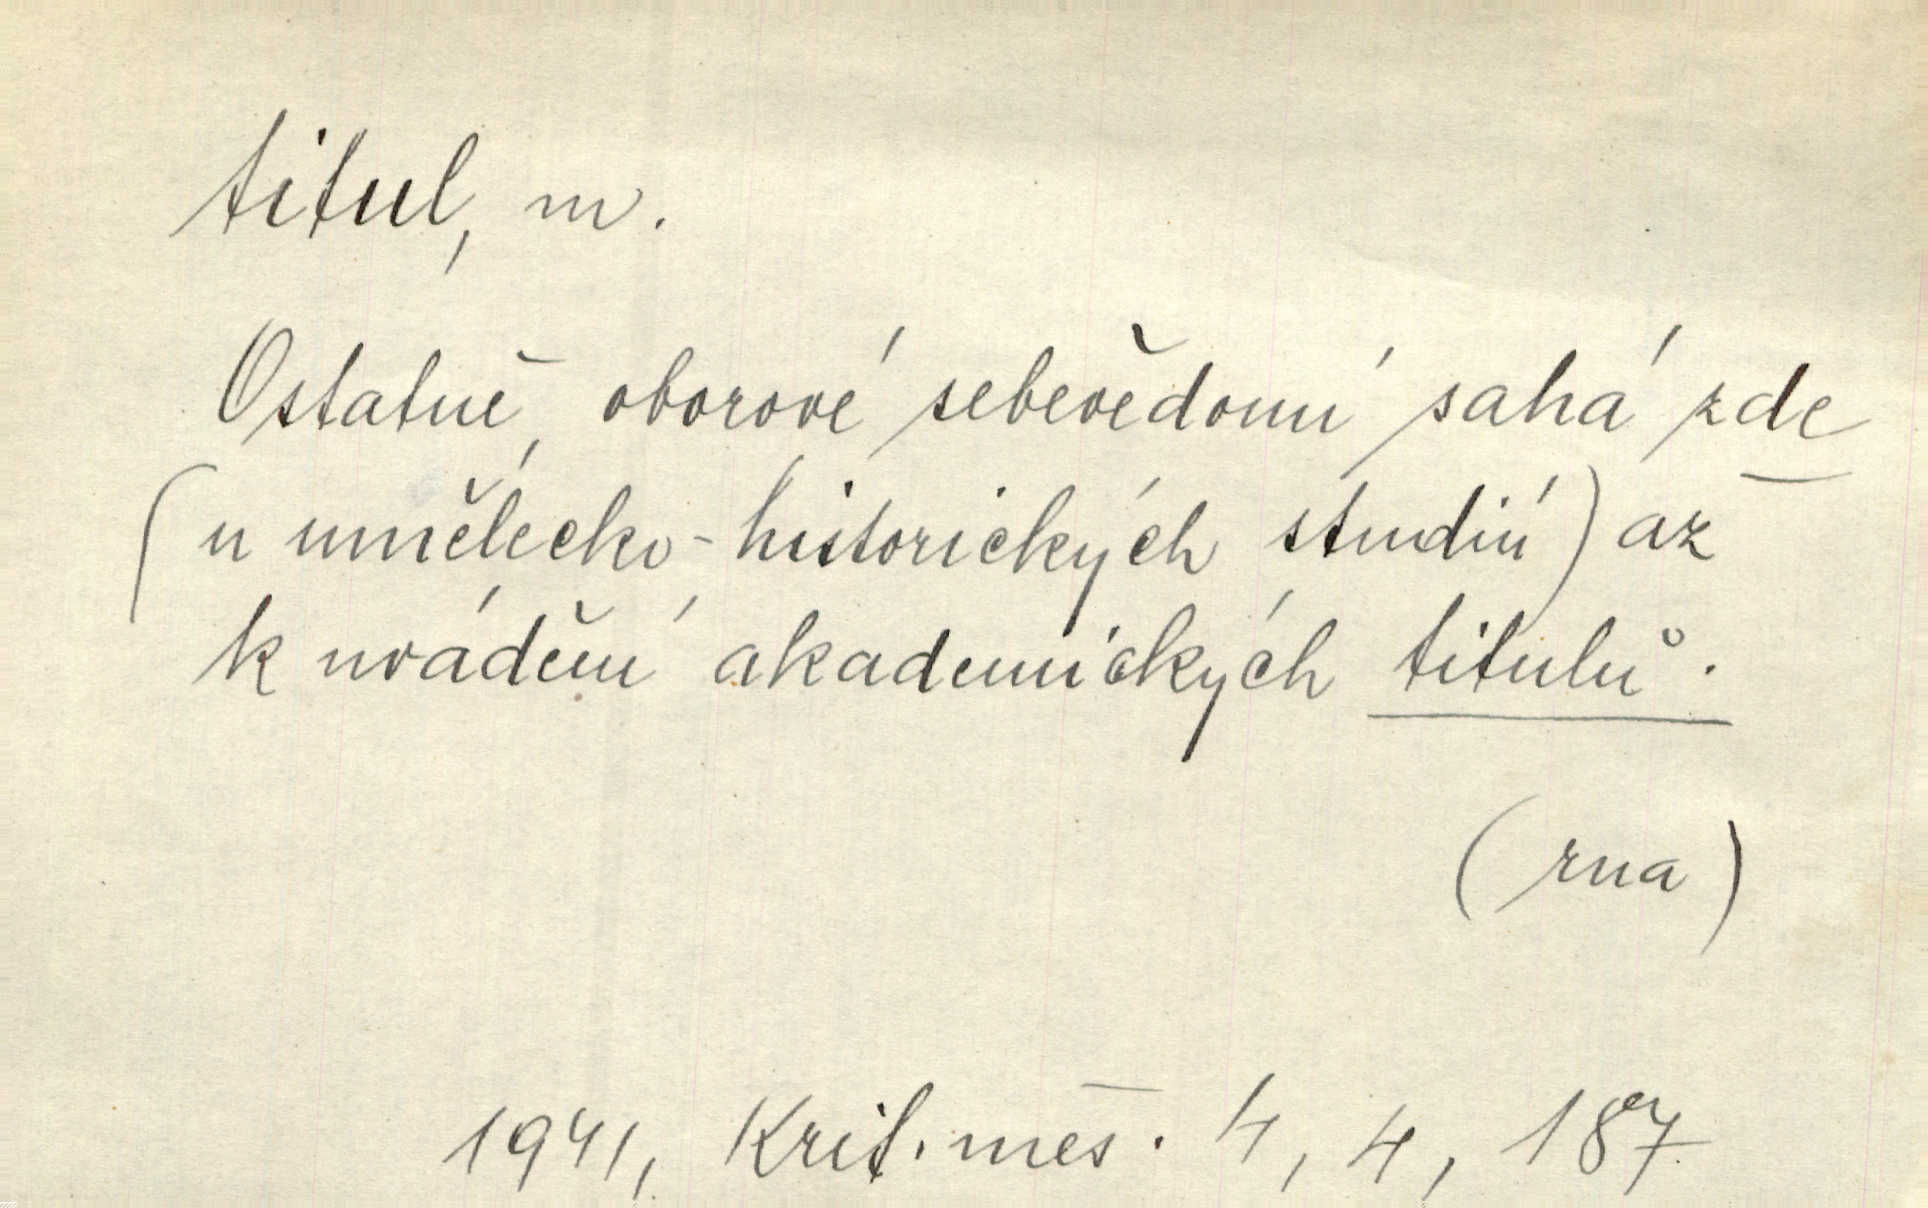 titul, m.
Ostatně, oborové sebevědomí sahá zde
(u umělecko-historických studií) až
k uvádění akademických titulů.
(rna)
1941, Krit. měs. 4, 4, 187